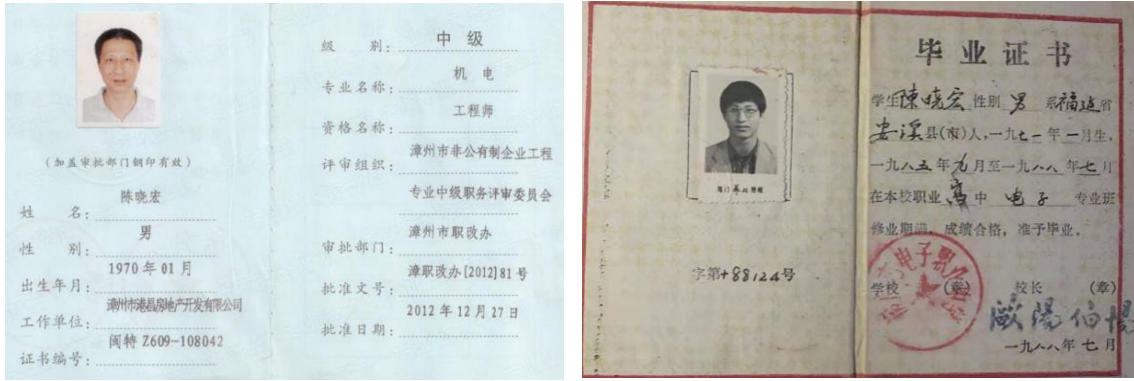 (加盖审批部门钢印有效)
姓 名: 陈晓宏
性 别: 男
出生年月: 1970年01月
工作单位: 漳州市港昌房地产开发有限公司
证书编号: 闽特 Z609-108042
级 别: 中级
专业名称: 机 电
资格名称: 工程师
评审组织: 漳州市非公有制企业工程
专业中级职务评审委员会
审批部门: 漳州市职改办
批准文号: 漳职改办[2012]81号
批准日期: 2012年12月27日
字第+88124号
毕业证书
学生陳晓宏性别男系福建省
安溪县(市)人,一九七一年一月生,
一九八五年九月至一九八八年七月
在本校职业高中电子专业班
修业期满,成绩合格,准予毕业。
学校 (章) 校长 (章)
一九八八年七月